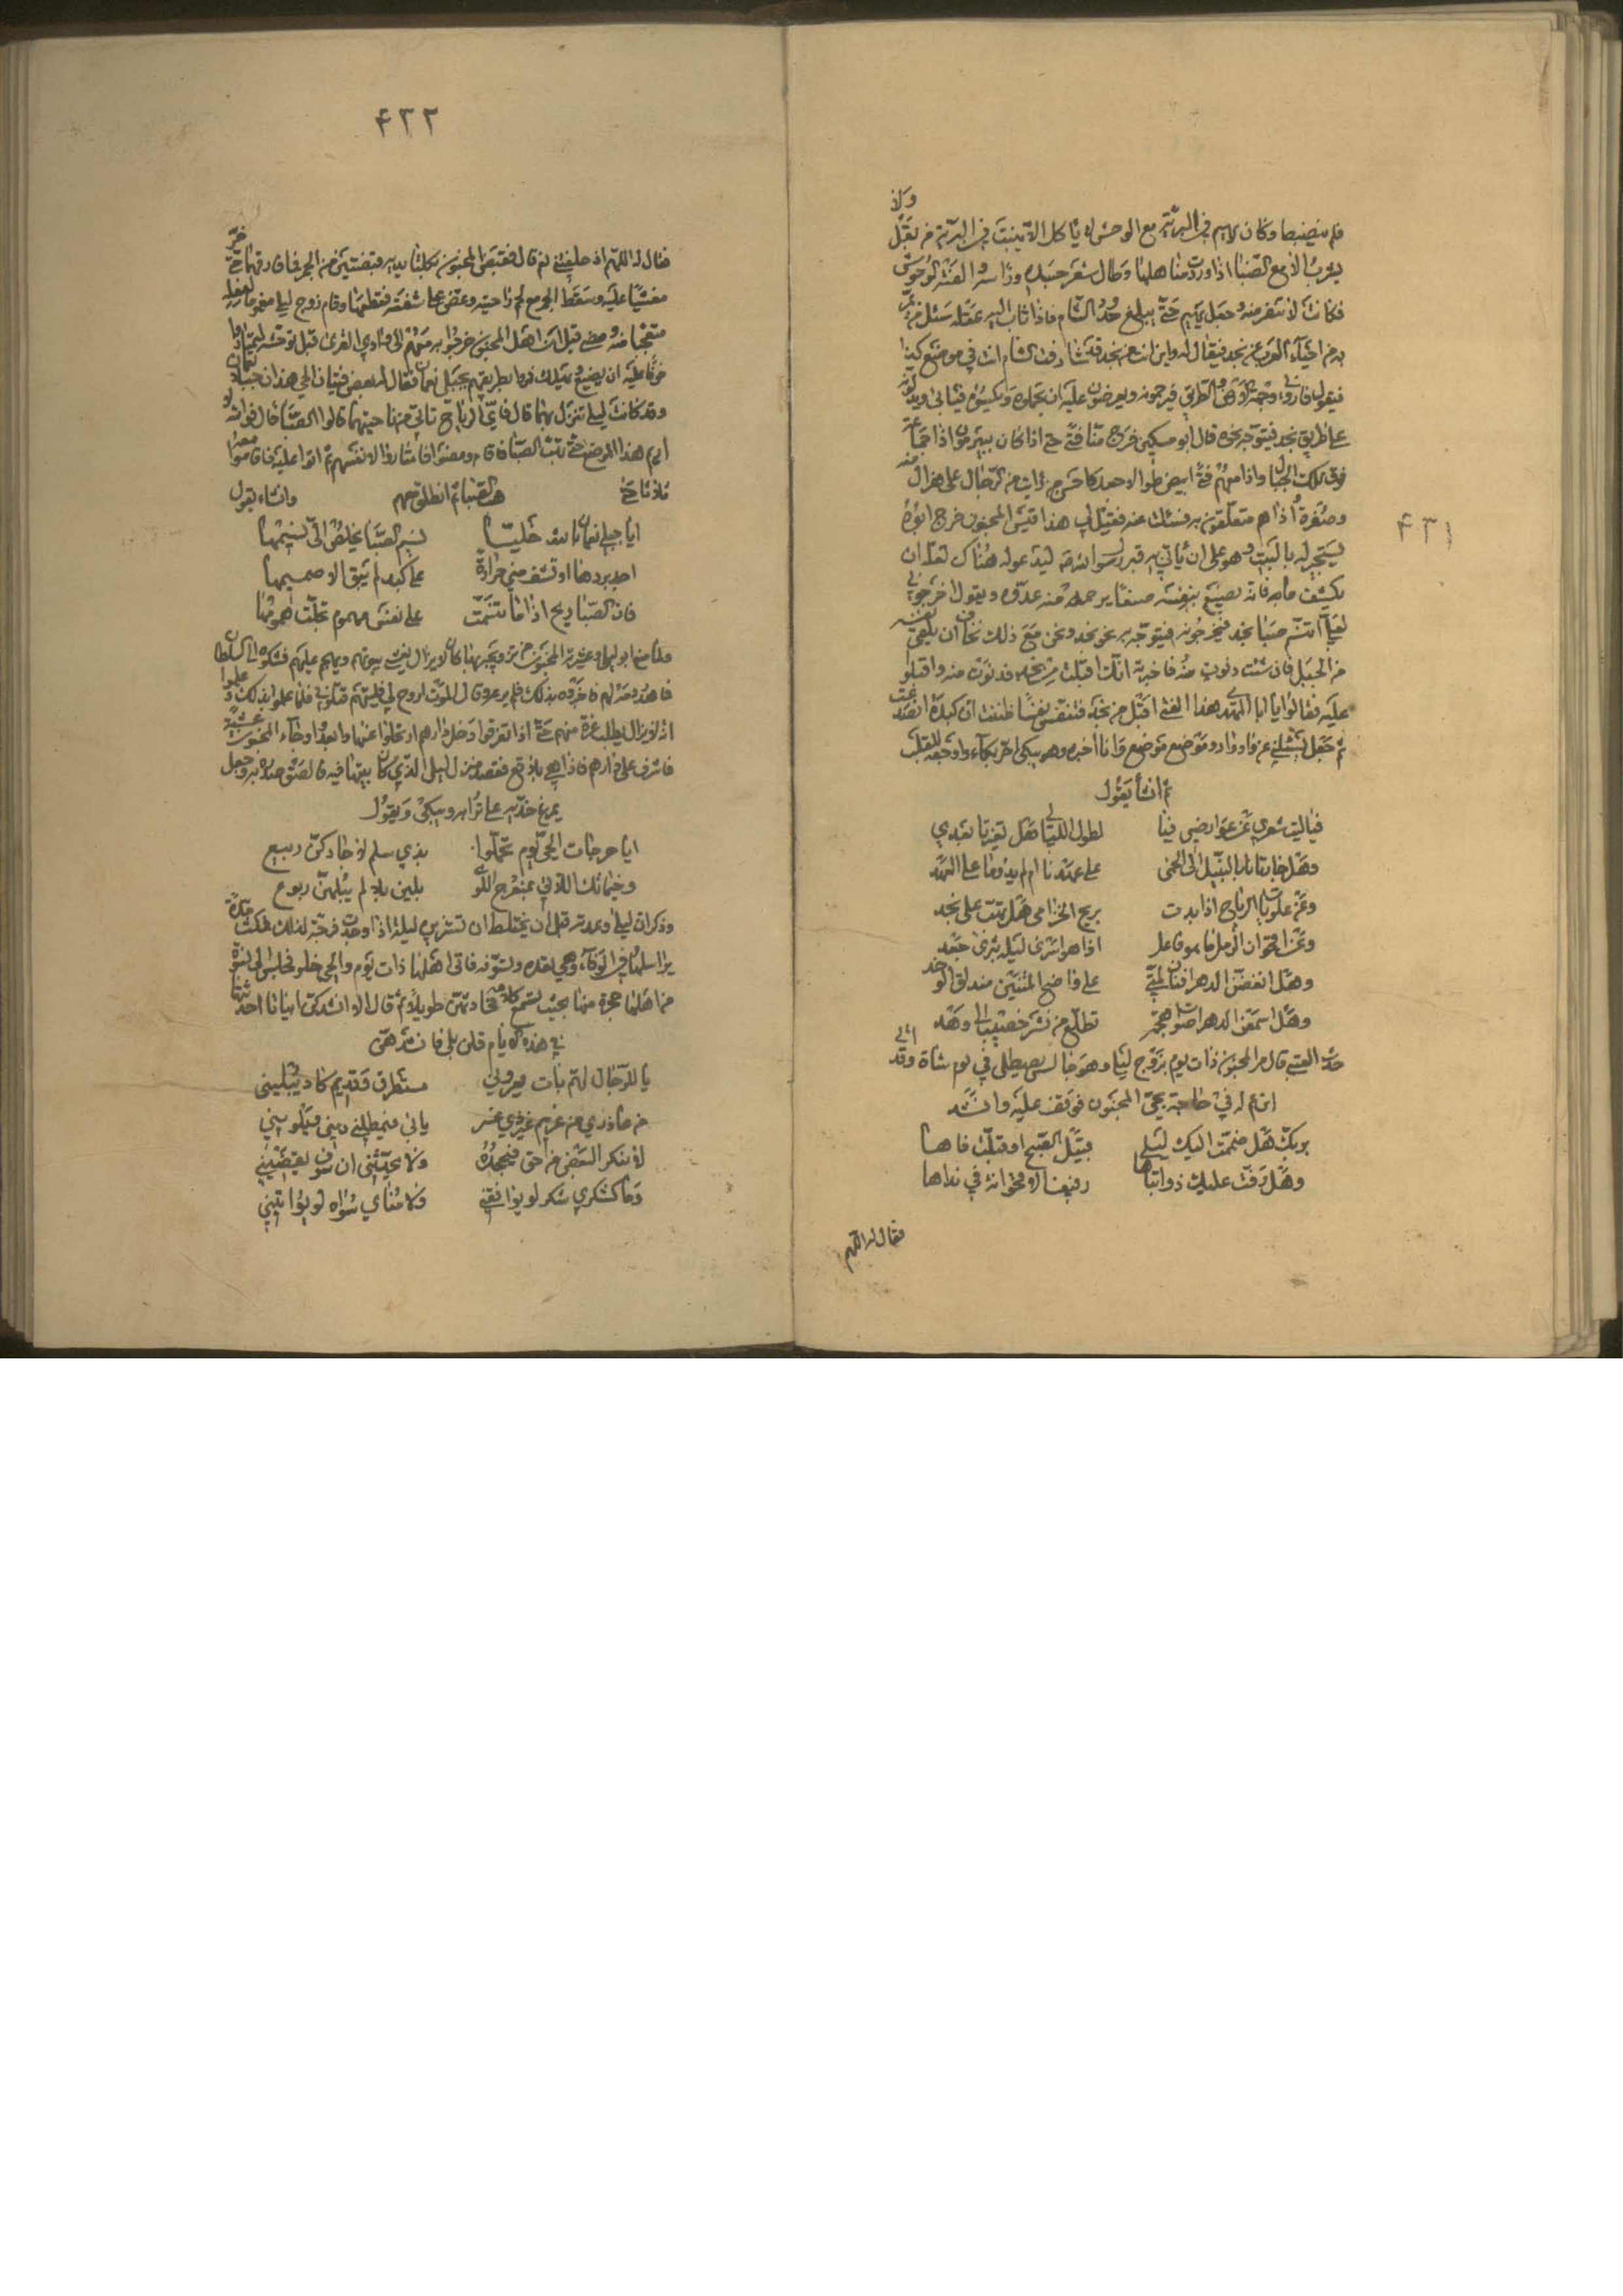 ۴۳۱
ولا
وكان يهيم في البرية مع الوحش لا ياكل الا ما ينبت في البرية من بقل
يشرب الا مع الظبا اذا وردت مناهلها وطال شعر جسده وراسه والفته الوحوش
فكانت لا تنفر منه وجعل يهيم حتى يبلغ حدود الشام فاذا ثاب اليه عقله سئل من يمر
به من احياء العرب عن نجد فيقال له واين انت من نجد قد شارفت الشام انت في موضع كذا
فيقول فاروني وجهة الطريق فيرحمونه ويعرضون عليه ان يحملوه ويكسوه فيابى ويدلونه
على طريق نجد فيتوجه نحوه قال ابو مسكين خرج منا فتى حتى اذا كان ببئر ميمون اذا جماعة
فوق تلك الجبال واذا معهم فتى ابيض طوال جعد كاحسن من رايت من الرجال على هزال منه
وصفرة واذا هم متعلقون به فسئلت عنه فقيل لي هذا قيس المجنون خرج ابوه
يستجير له بالبيت وهو على ان ياتي به قبر رسول الله ليدعو له هناك لعله ان
يكشف ما به فانه يصنع بنفسه صنعا يرحمه منه عدوه ويقول اخرجوني
لعلي اتنسم صبا نجد فيخرجونه فيتوجه به نحو نجد ونحن مع ذلك نخاف ان يلقي نفسه
من الجبل فان شئت دنوت منه فاخبرته انك اقبلت من نجد فدنوت منه واقبلوا
عليه فقالوا يا ابا المهدي هذا الفتى اقبل من نجد فتنفس نفسا ظننت ان كبده انصدعت
ثم جعل يسئلني عن واد واد وموضع موضع وانا اخبره وهو يبكي احر بكاء واوجعه للقلب
ثم انشا يقول
فيا ليت شعري عن عوارضي قنا لطول الليالي هل تغيرتا بعدي
وهل جارتانا بالبتيل الى الحمى على عهدنا ام لم يدوما على العهد
وعن علويات الرياح اذا بدت بريح الخزامى هل تهب على نجد
وعن اقحوان الرمل ما هو فاعل اذا هو اسرى ليلة بثرى جعد
وهل انفضن الدهر افنان لمتي على واضح المتنين مندلق الوخد
وهل اسمعن الدهر اصوات هجمة تطلع من نشز خصيب الى وهد
حدث العتبي قال مر المجنون ذات يوم بزوج ليلى وهو جالس يصطلي في يوم شات وقد اتى
ابن عم له في حاجة بحي المجنون فوقف عليه وانشد
بربك هل ضممت اليك ليلى قبيل الصبح او قبلت فاها
وهل رفت عليك ذوائبها رفيف الاقحوانة في نداها
فقال له اللهم
۴۳۲
فقال له اللهم اذ حلفتني نعم قال فقبض المجنون بكلتا يديه قبضتين من الجمر فما فارقهما حتى خر
مغشيا عليه وسقط الجمر مع لحم راحتيه وعض على شفته فقطعها وقام زوج ليلى مغموما بفعله
متعجبا منه ومضى قيل ان اهل المجنون خرجوا به معهم الى وادي القرى قبل توحشه ليمتاروا
خوفا عليه ان يضيع ويهلك فمروا بطريقهم بجبلي نعمان فقال له بعض فتيان الحي هذان جبلا نعمان
وقد كانت ليلى تنزل بهما قال فاي الرياح تاتي من ناحيتهما قالوا الصبا قال فوالله لا
اريم هذا الموضع حتى تهب الصبا فاقام ومضوا فامتاروا لانفسهم ثم اتوا عليه فاقاموا معه
ثلاثا حتى هبت الصبا ثم انطلق معهم وانشاء يقول
ايا جبلي نعمان بالله خليا نسيم الصبا يخلص الي نسيمها
اجد بردها او تشف مني حرارة على كبد لم يبق الا صميمها
فان الصبا ريح اذا ما تنسمت على نفس مهموم تجلت همومها
فلما منع ابو ليلى وعشيرته المجنون من تزويجه بها كان لا يزال يغشى بيوتهم ويهجم عليهم فشكوه الى السلطان
فاهدر دمه لهم فاخبروه بذلك فلم يرعه وقال الموت اروح لي فليتهم قتلوني فلما علموا بذلك وعلموا
انه لا يزال يطلب غرة منهم حتى اذا تفرقوا دخل دارهم ارتحلوا عنها وابعدوا وجاء المجنون عشية
فاشرف على دارهم فاذا هي بلاقع فقصد منزل ليلى الذي كان بيتها فيه فالصق صدره به وجعل
يمرغ خديه على ترابه ويبكي ويقول
ايا حرجات الحي يوم تحملوا بذي سلم لا جادكن ربيع
وخيماتك اللاتي بمنعرج اللوى بلين بلى لم تبلهن ربوع
وذكر ان ليلى وعدته قبل ان يختلط ان تستزيره ليلة اذا وجدت فرصة لذلك فمكث مدة
يراسلها في الوفاء وهي تعده وتسوفه فاتى اهلها ذات يوم والحي خلو فجلس الى نسوة
من اهلها حجرة منها بحيث تسمع كلامه فحادثهن طويلا ثم قال الا انشدكن ابياتا احدثتها
في هذه الايام قلن بلى فانشدهن
يا للرجال لهم بات يعروني مستطرف وقديم كاد يبليني
من عاذري من غريم غير ذي عسر يابى فيمطلني ديني ويلويني
لا ينكر البعض من حقي فيجحده ولا يحدثني ان سوف يقضيني
وما كشكري شكر لو يوافقني ولا مناي سواه لو يواتيني